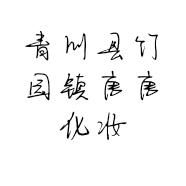 青川县竹
园镇唐唐
化妆